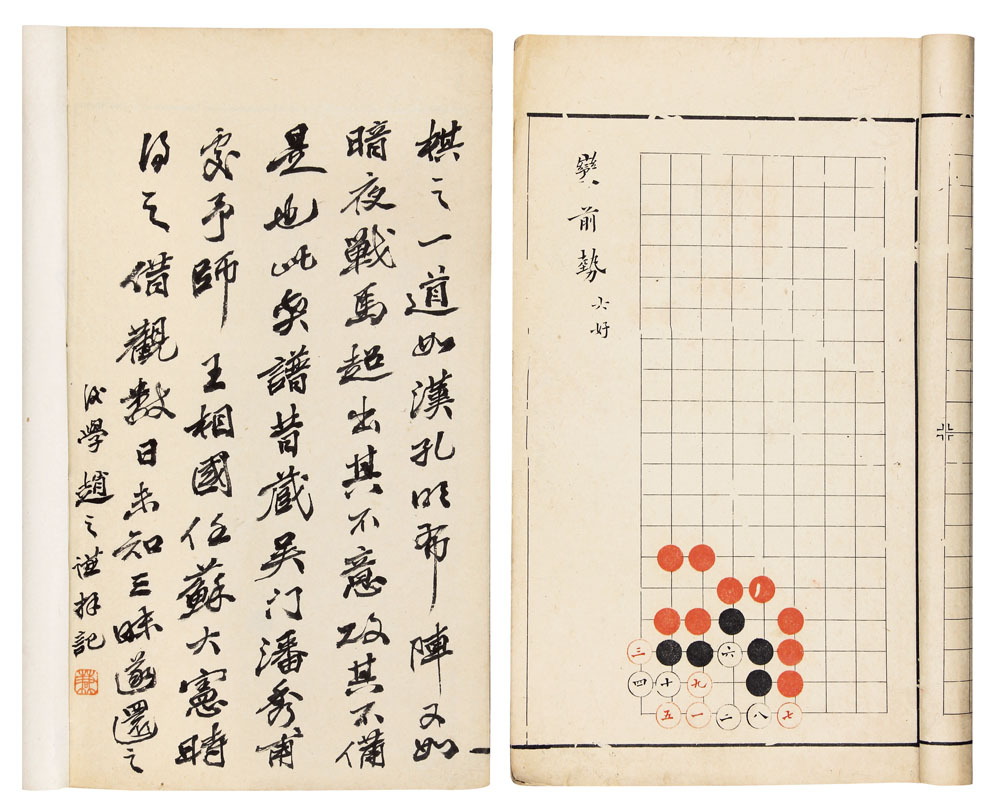 棋之一道如漢孔明布陣又如
暗夜戰馬超出其不意攻其不備
是也此奕譜昔藏吳门潘秀甫
家予師 王相國任蘇大憲時
得之借觀數日未知三昧遂還之
後學趙之謙拜記
前勢
好
三 六
四 十 九
五 一 二 八 七